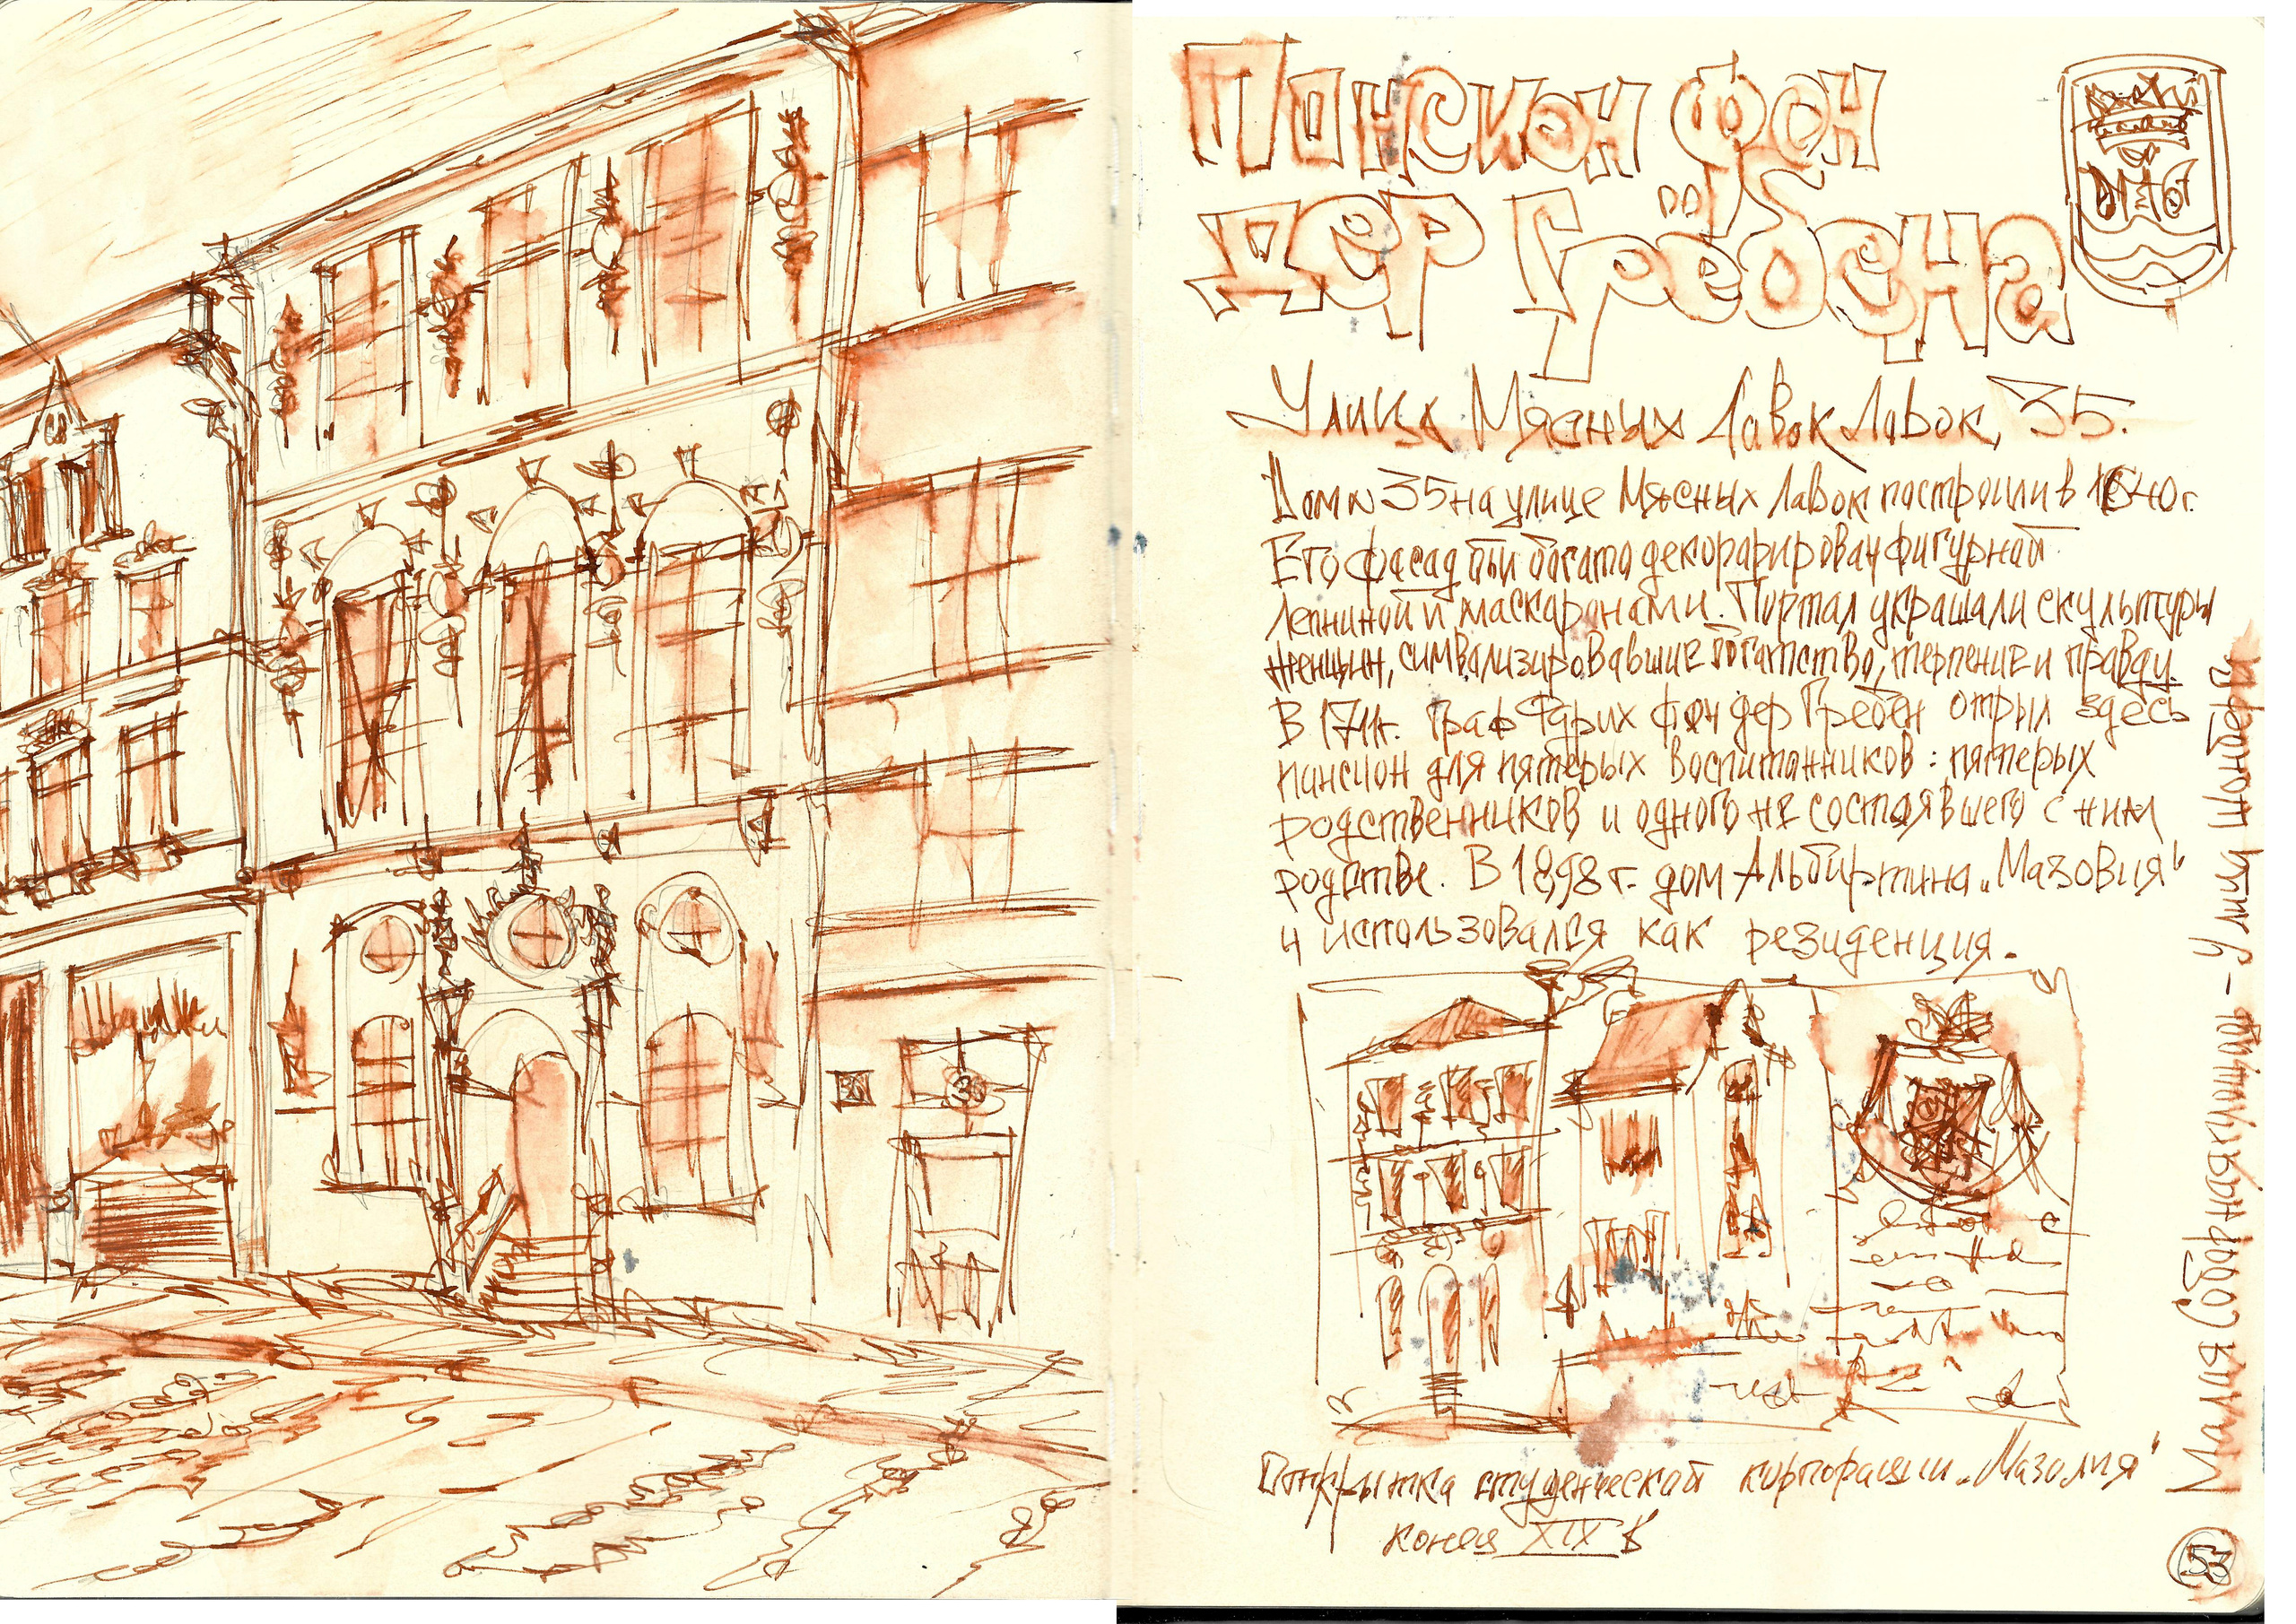 Пансион фон
дер Грёбена
Улица Мясных Лавок Лавок, 35.
Дом № 35 на улице Мясных Лавок построили в 1640 г.
Его фасад был богато декорарирован фигурной
лепниной и маскаронами. Портал украшали скульптуры
женщин, символизировавшие богатство, терпение и правду.
В 1711г. граф Фдрих фон дер Гребен отрыл здесь
пансион для пятерых воспитанников: пятерых
родственников и одного не состоявшего с ним
родстве. В 1898 г. дом Альбиртина „Мазовия"
и использовался как резиденция.
студенческой корпорации „Мазолия"
конец XIX в
Малая Соборная - Улица Шюнбери
53